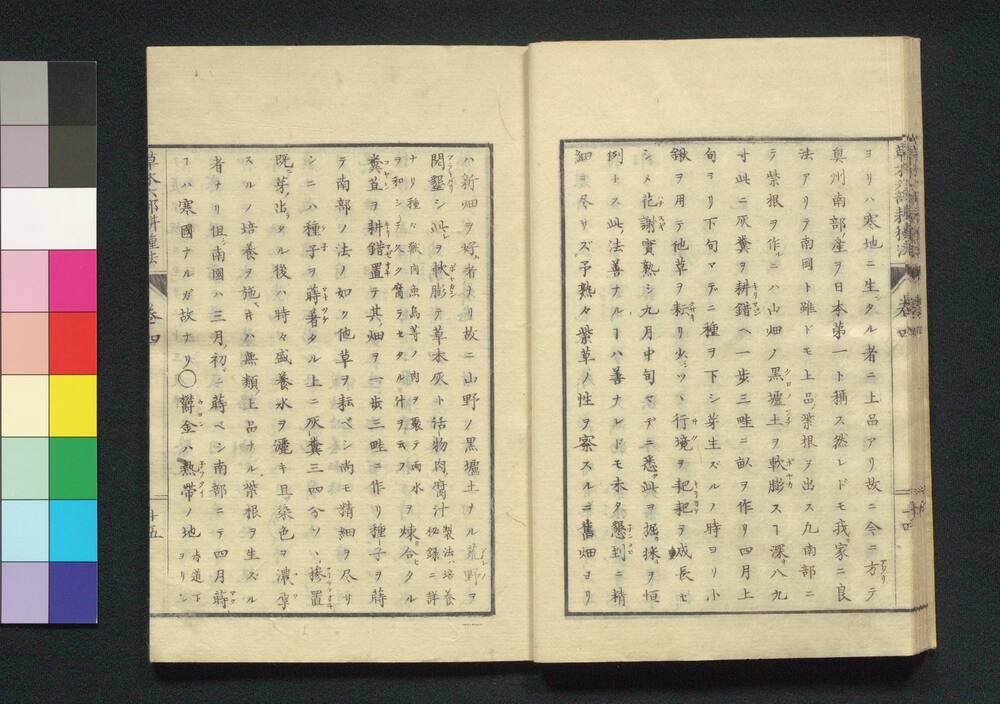 ヨリハ寒地ニ生タル者ニ上品アリ故ニ今ニ方テ
奥州南部産ヲ日本第一ト稱ス然レドモ我家ニ良
法アリテ南國ト雖ドモ上品ノ紫根ヲ出ス凡南部ニ
テ紫根ヲ作ルニハ山畑ノ黒壚土ヲ軟膨スヿ深八九
寸此ニ灰糞ヲ耕錯ヘ一歩三畦ニ畝ヲ作リ四月上
旬ヨリ下旬マデニ種ヲ下シ芽生ズルノ時ヨリ小
鍬ヲ用テ他草ヲ耘リ少ヅツ行境ヲ耙耙テ成長セ
シメ花謝實熟シ九月中旬マデニ悉ク此ヲ掘採ヲ恒
例トス此法善ナルヿハ善ナレドモ未タ懇到ニ精
細ヲ尽リズ予熟々紫草ノ性ヲ察スルニ舊畑ヨリ
草木六部耕種法
巻四
十四
ハ新畑ヲ好者ナリ故ニ山野ノ黒壚土ナル荒野ヲ
開墾シ此ヲ軟膨テ草木灰ト活物肉腐汁 製法ハ培養秘録ニ詳
ナリ種々獣肉魚鳥等ノ肉ヲ聚テ雨水
ヲ和シテ久ク腐ラセタル汁ヲ云フ ヲ煉合タル
糞苴ヲ耕錯置テ其畑ヲ一歩三畦ニ作リ種子ヲ蒔
テ南部ノ法ノ如ク他草ヲ耘ベシ尚モ精細ヲ尽サ
ンニハ種子ヲ蒔著タル上ニ灰糞三四分ヅヽ摻置
既ニ芽ノ出タル後ハ時々盛養水ヲ灑キ且染色ヲ濃厚
スルノ培養ヲ施トキハ無類ノ上品ナル紫根ヲ生ズル
者ナリ但シ南國ハ三月初ニ蒔ベシ南部ニテ四月蒔
ヿハ寒國ナルガ故ナリ〇鬱金ハ熱帶ノ地 赤道下ヨリ
草木六部耕種法
巻四
十五